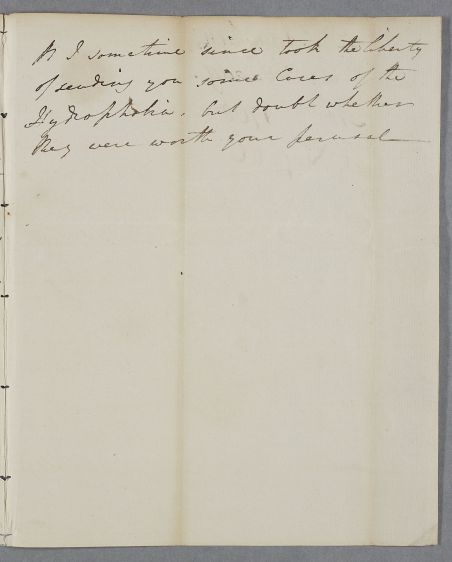 Ps I sometime since took the liberty
of sending you some Cases of the
Hydrophobia. but doubt whether
they were worth your perusal